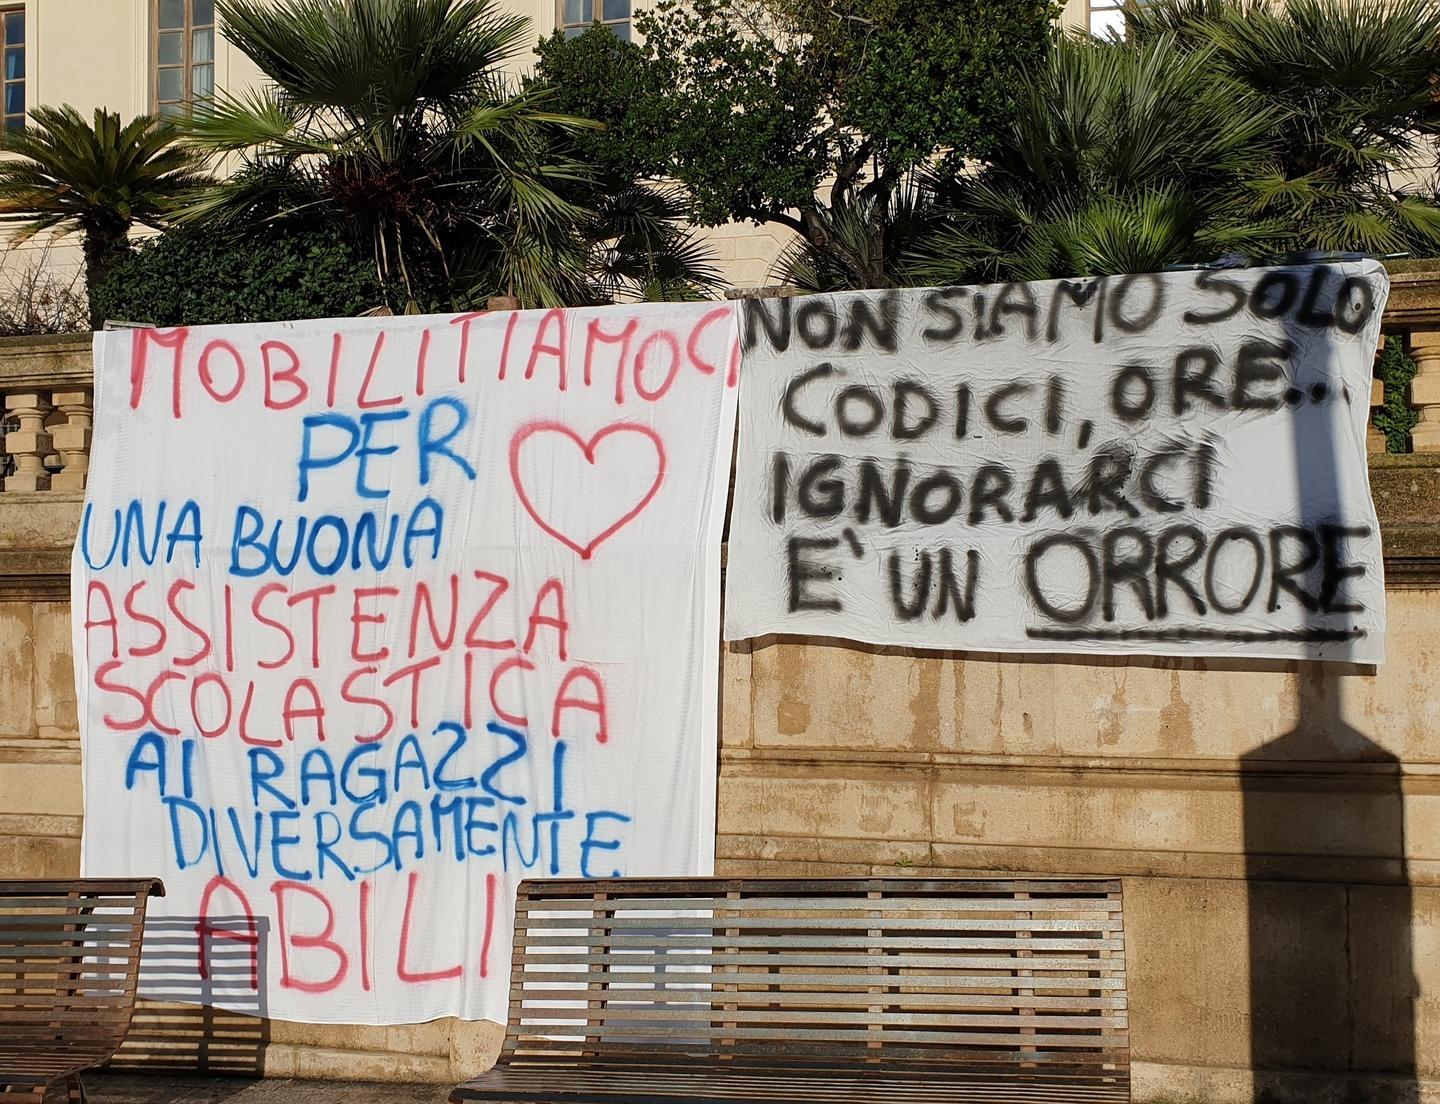 MOBILITIAMOCI
PER
UNA BUONA
ASSISTENZA
SCOLASTICA
AI RAGAZZI
DIVERSAMENTE
ABILI
NON SIAMO SOLO
CODICI, ORE...
IGNORARCI
E' UN ORRORE